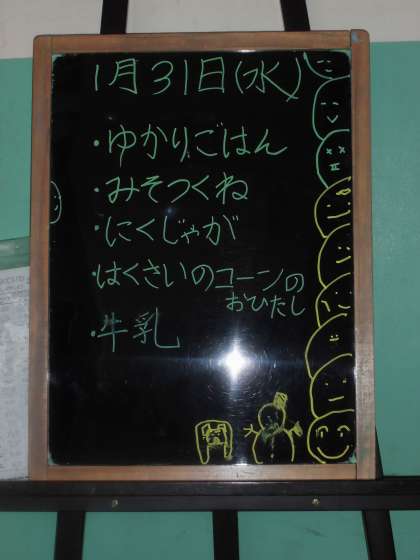 1月31日(水)
・ゆかりごはん
・みそつくね
・にくじゃが
・はくさいのコーンの
おひたし
・牛乳